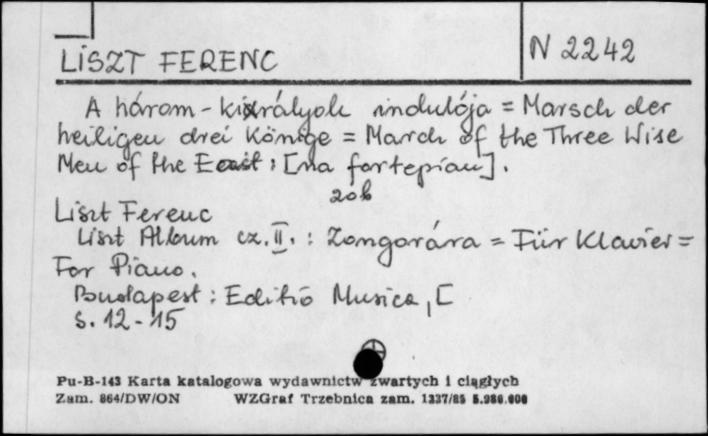 LISZT FERENC
N 2242
A három-királyok indulója = Marsch der
heiligen drei Könige = March of the Three Wise
Men of the East : [na fortepian].
zob
Liszt Ferenc
Liszt Album cz. II. : Zongorára = Für Klavier =
For Piano.
Budapest : Editio Musica, [
s. 12-15
Pu-B-143 Karta katalogowa wydawnictw zwartych i ciągłych
Zam. 864/DW/ON WZGraf Trzebnica zam. 1337/85 5.980.000